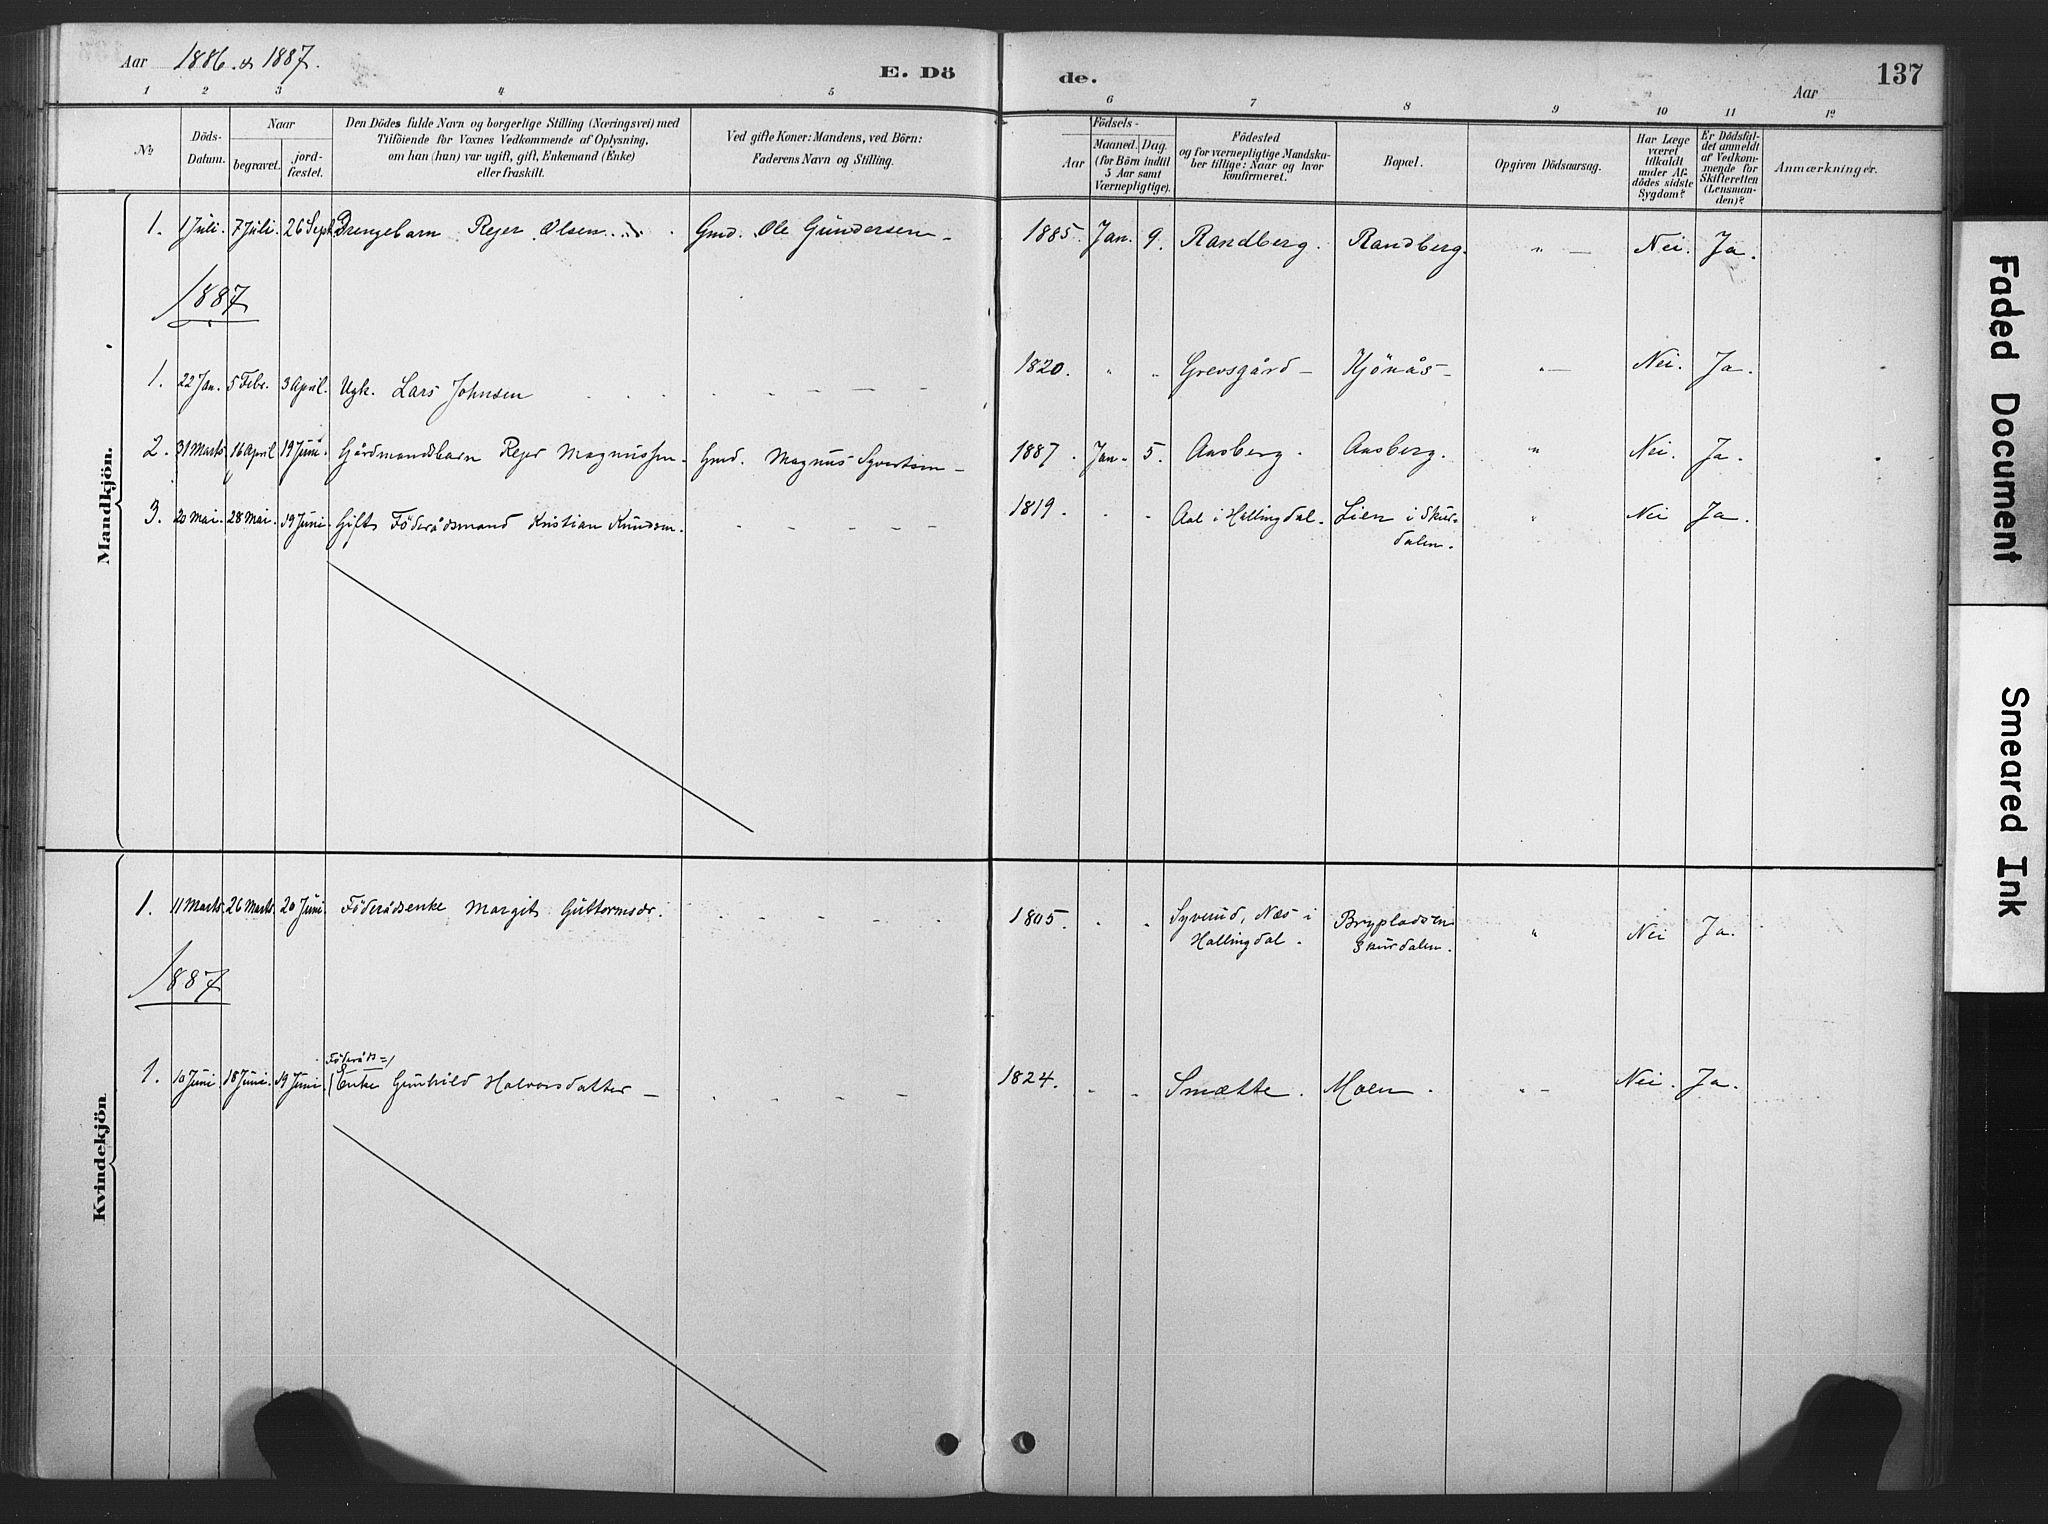 Aar 1886 & 1887.
E. Dö de.
Aar
137
1 2 3 4 5 6 7 8 9 10 11 12
No
Döds-Datum.
Naar
begravet.
jord-fæstet.
Den Dödes fulde Navn og borgerlige Stilling (Næringsvei) med
Tilföiende for Voxnes Vedkommende af Oplysning,
om han (hun) var ugift, gift, Enkemand (Enke)
eller fraskilt.
Ved gifte Koner: Mandens, ved Börn:
Faderens Navn og Stilling.
Födsels-
Aar
Maaned. Dag.
(for Börn indtil
5 Aar samt
Værnepligtige).
Födested
og for værnepligtige Mandska-
ber tillige: Naar og hvor
konfirmeret.
Bopæl.
Opgiven Dödsaarsag.
Har Læge
været
tilkaldt
under Af-
dödes sidste
Sygdom?
Er Dödsfal-
det anmeldt
af Vedkom-
mende for
Skifteretten
(Lensman-
den)?
Anmærkninger.
Mandkjön.
1. 1 Juli. 7 Juli. 26 Sept. Drengebarn Rejer Olsen. Gmd. Ole Gundersen - 1885. Jan. 9. Randberg. Randberg. " - Nei. Ja.
1887
1. 22 Jan. 5 Febr. 3 April. Ugk. Lars Johnsen - - - - 1820. " " Grevsgård - Kjönås - " - Nei. Ja.
2. 31 Marts 16 April 19 Juni. Gårdmandsbarn Rejer Magnussen. Gmd. Magnus Syvertsen - 1887. Jan. 5. Aasberg. Aasberg. " Nei. Ja.
3. 20 Mai. 28 Mai. 19 Juni. Gift Föderådsmand Kristian Knudsen. - - - - 1819. " " Aal i Hallingdal. Lien i Skur-
dalen. " Nei Ja.
Kvindekjön
1. 11 Marts. 26 Marts. 20 Juni. Föderådsenke Margit Guttormsdr. - - - - 1805. " " Syverud, Næs i
Hallingdal. Brypladsen
Skurdalen. " Nei Ja.
1887
Föderåds=)
1. 10 Juni. 18 Juni. 19 Juni. (Enke Gunhild Halvorsdatter - - - - 1824. " " Smætte. Moen. " - Nei. Ja.
Faded Document
Smeared Ink